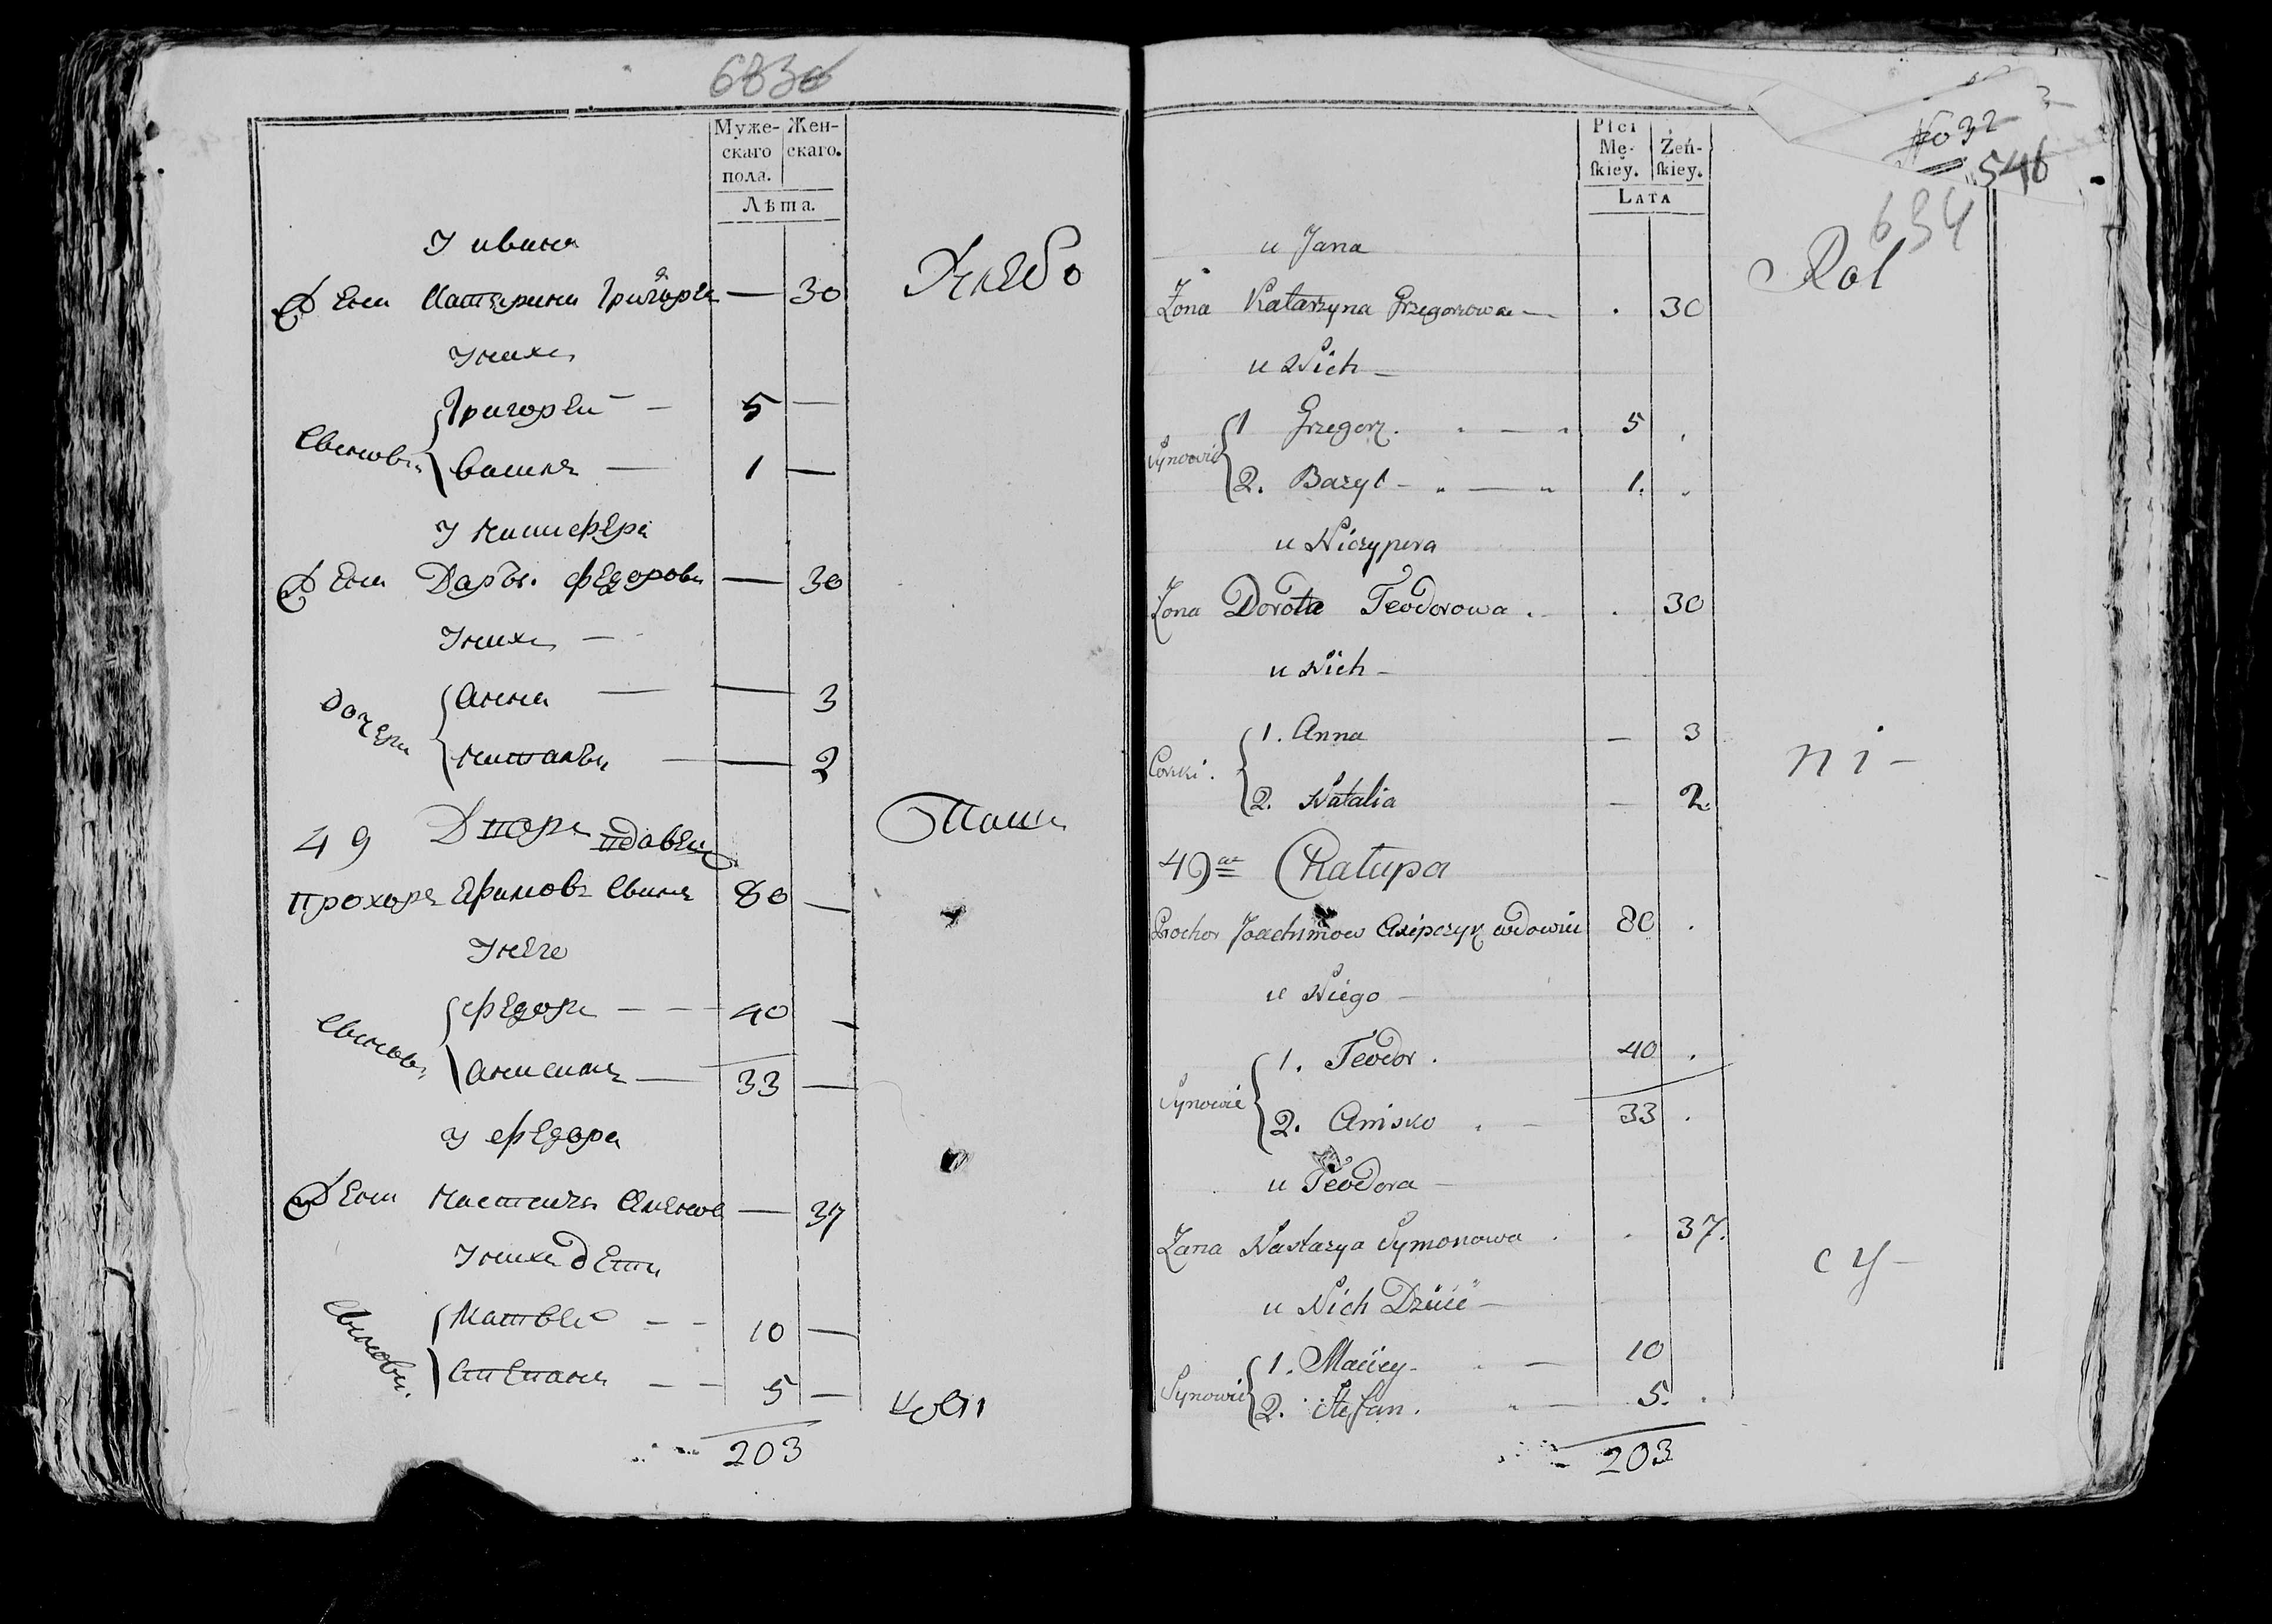 6830
Муже-
скаго
пола.
Жен-
скаго.
Лѣта.
У ивана
Жена Катерина Григорьева — 30
Хлебо
У нихъ
Сыновья
Григорей — 5 —
Василь — 1 —
У Ничипера
Жена Дарья Федорова — 30
У нихъ —
дочери
Анна — — 3
Наталья — — 2
49 Двора вдовец
Паш
Прохоръ Ефимовъ Сынъ 80 —
У него
Сыновья
Федоръ — — 40 —
Анисимъ — 33 —
У Федора
Жена Настасья Семенова — 37
У нихъ дети
Сыновья
Матвей — — 10 —
Степанъ — — 5 —
цы
203
No 32
546
634
Płci
Mę-
ſkiey.
Żeń-
ſkiey.
LATA
u Jana
Rol
Żona Katarzyna Grzegorzowa — . 30
u Nich —
Synowie
1 Grzegorz. 5 .
2. Bazyl — 1. .
u Niczypera
Żona Dorota Teodorowa . . 30
u Nich —
Corki.
1. Anna — 3
2. Natalia — 2.
ni —
49 Chałupa
Prochor Joachimow Axipczyk wdowiec 80 .
u Niego —
Synowie
1. Teodor . 40 .
2. Anisko . — 33 .
u Teodora —
Żona Nastazya Symonowa . . 37.
cy —
u Nich Dzieci —
Synowie
1. Maciey — 10
2. Stefan. — 5. .
203